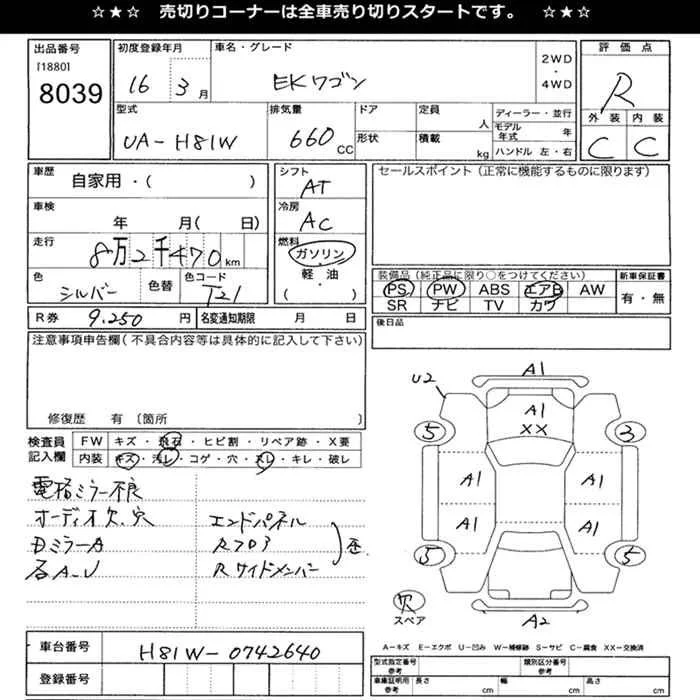 ☆★☆ 売切りコーナーは全車売り切りスタートです。 ☆★☆
出品番号
[1880]
8039
初度登録年月
16 3月
車名・グレード
EKワゴン
2WD
・
4WD
評価点
R
外装 内装
C C
型式
UA-H81W
排気量
660 CC
ドア
形状
定員 人
積載 kg
ディーラー・並行
モデル年式 年
ハンドル 左・右
車歴
自家用・( )
車検
年 月( 日)
走行
8万2千470 km
色
シルバー
色替
色コード
T21
シフト
AT
冷房
AC
燃料
ガソリン
・
軽・油
( )
セールスポイント(正常に機能するものに限ります)
装備品(純正品に限り○をつけてください)
PS PW ABS エアB AW
SR ナビ TV カワ
新車保証書
有・無
R券 9.250 円
名変通知期限 月 日
後日品
注意事項申告欄(不具合内容等は具体的に記入して下さい)
修復歴 有 〔箇所 〕
検査員記入欄
FW キズ・飛石・ヒビ割・リペア跡・X要
内装 キズ・汚レ・コゲ・穴・スレ・キレ・破レ
電格ミラー不良
オーディオ欠、穴
DミラーA
各A.U
エンドパネル
Rフロア
Rサイドメンバー
U2
A1
A1
XX
5 3
A1 A1
A1 A1
5 5
A2
欠
スペア
A-キズ E-エクボ U-凹み W-補修跡 S-サビ C-腐食 XX-交換済
車台番号 H81W-0742640
登録番号
型式指定番号 参考
類別区分番号 参考
車庫証明用 参考
長さ cm
幅 cm
高さ cm